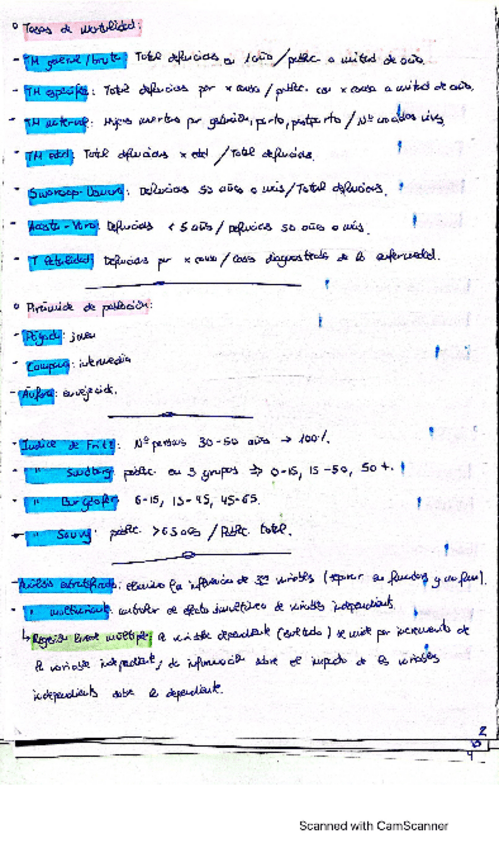 ° Tasas de mortalidad:
- TM general/bruta: Total defunciones en 1 año / poblac. a mitad de año.
- TM específica: Total defunciones por x causa / poblac. con x causa a mitad de año.
- TM materna: Mujeres muertas por gestación, parto, postparto / Nº nacidos vivos
- TM edad: Total defunciones x edad / Total defunciones.
- Swaroop-Uemura: Defunciones 50 años o más / Total defunciones.
- Defunciones < 5 años / defunciones 50 años o más.
- T letalidad: Defunciones por x causa / casos diagnosticados de la enfermedad.
° Pirámide de población:
- Pagoda: joven
- Campana: intermedia
- envejecida.
- Índice de Fritz: Nº personas 30-50 años → 100%.
- " Sundbarg: poblac. en 3 grupos ⇒ 0-15, 15-50, 50+.
- " Burgdofer: 6-15, 15-45, 45-65.
- " Sauvy: poblac. >65 años / Poblac. total.
- Análisis estratificado: elimina la influencia de 3ª variables (separar en fumadores y no fum).
- " multivariante: controlar el efecto simultáneo de variables independientes.
↳ Regresión lineal múltiple: la variable dependiente (resultado) se mide por incremento de
la variable independiente, da información sobre el impacto de las variables
independientes sobre la dependiente.
Scanned with CamScanner